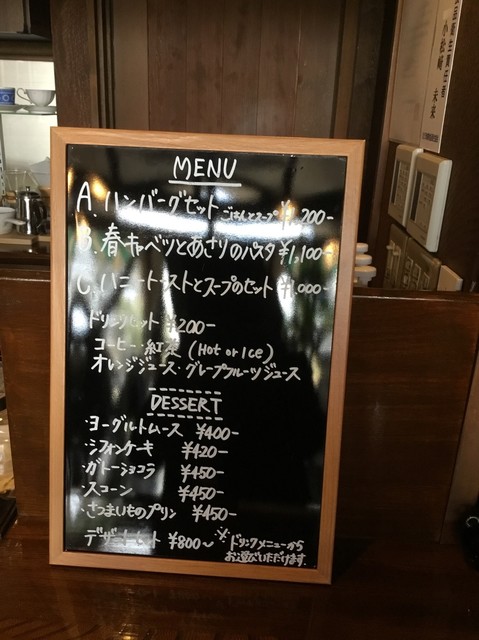 MENU
A. ハンバーグセット ごはんとスープ ¥1,200-
B. 春キャベツとあさりのパスタ ¥1,100-
C. ハニートーストとスープのセット ¥1,000-
ドリンクセット ¥200-
コーヒー・紅茶 (Hot or Ice)
オレンジジュース・グレープフルーツジュース
DESSERT
・ヨーグルトムース ¥400-
・シフォンケーキ ¥420-
・ガトーショコラ ¥450-
・スコーン ¥450-
・さつまいものプリン ¥450-
デザートセット ¥800〜 ※ドリンクメニューから
お選びいただけます。
小松崎 未来